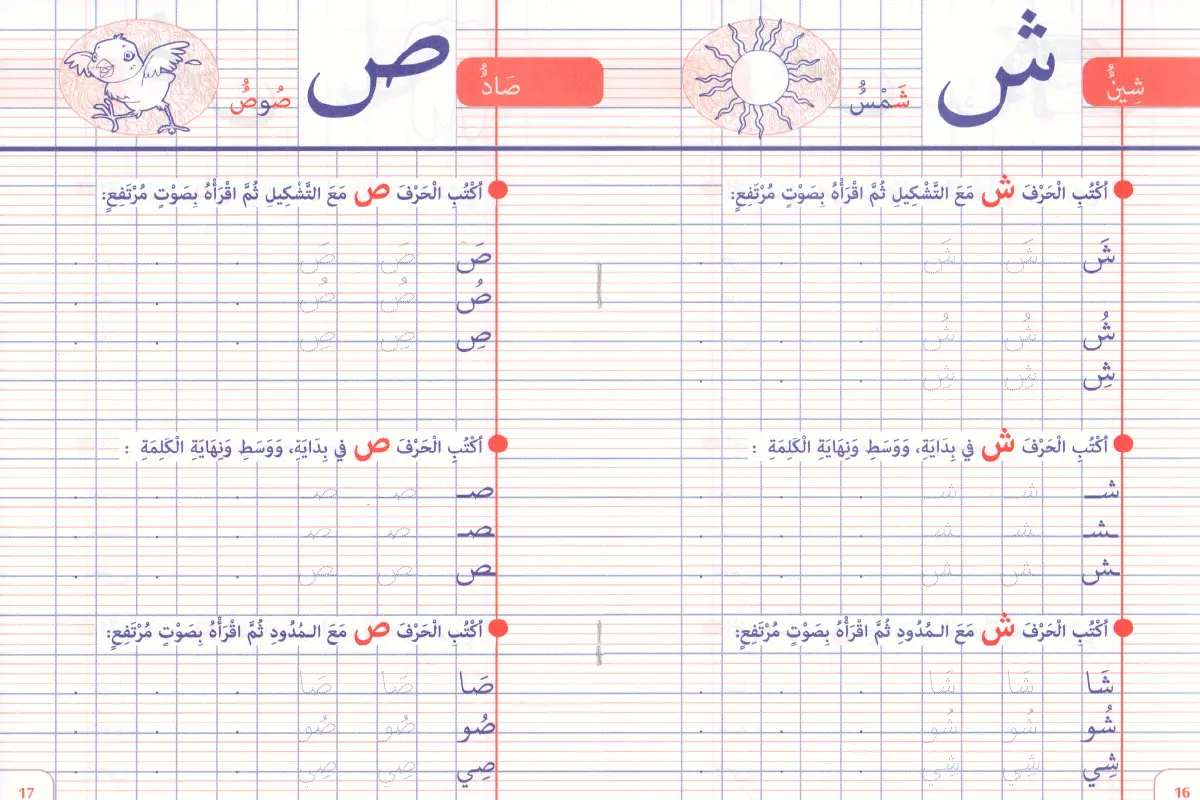 ش
شِينٌ
شَمْسٌ
اُكْتُبِ الْحَرْفَ ش مَعَ التَّشْكِيلِ ثُمَّ اقْرَأْهُ بِصَوْتٍ مُرْتَفِعٍ:
شَ شَ شَ
شُ شُ شُ
شِ شِ شِ
اُكْتُبِ الْحَرْفَ ش في بِدَايَةِ، وَوَسَطِ وَنِهَايَةِ الْكَلِمَةِ :
شـ شـ شـ
ـشـ ـشـ ـشـ
ـش ـش ـش
اُكْتُبِ الْحَرْفَ ش مَعَ الـمُدُودِ ثُمَّ اقْرَأْهُ بِصَوْتٍ مُرْتَفِعٍ:
شَا شَا شَا
شُو شُو شُو
شِي شِي شِي
16
ص
صَادٌ
صُوصٌ
اُكْتُبِ الْحَرْفَ ص مَعَ التَّشْكِيلِ ثُمَّ اقْرَأْهُ بِصَوْتٍ مُرْتَفِعٍ:
صَ صَ صَ
صُ صُ صُ
صِ صِ صِ
اُكْتُبِ الْحَرْفَ ص في بِدَايَةِ، وَوَسَطِ وَنِهَايَةِ الْكَلِمَةِ :
صـ صـ صـ
ـصـ ـصـ ـصـ
ـص ـص ـص
اُكْتُبِ الْحَرْفَ ص مَعَ الـمُدُودِ ثُمَّ اقْرَأْهُ بِصَوْتٍ مُرْتَفِعٍ:
صَا صَا صَا
صُو صُو صُو
صِي صِي صِي
17